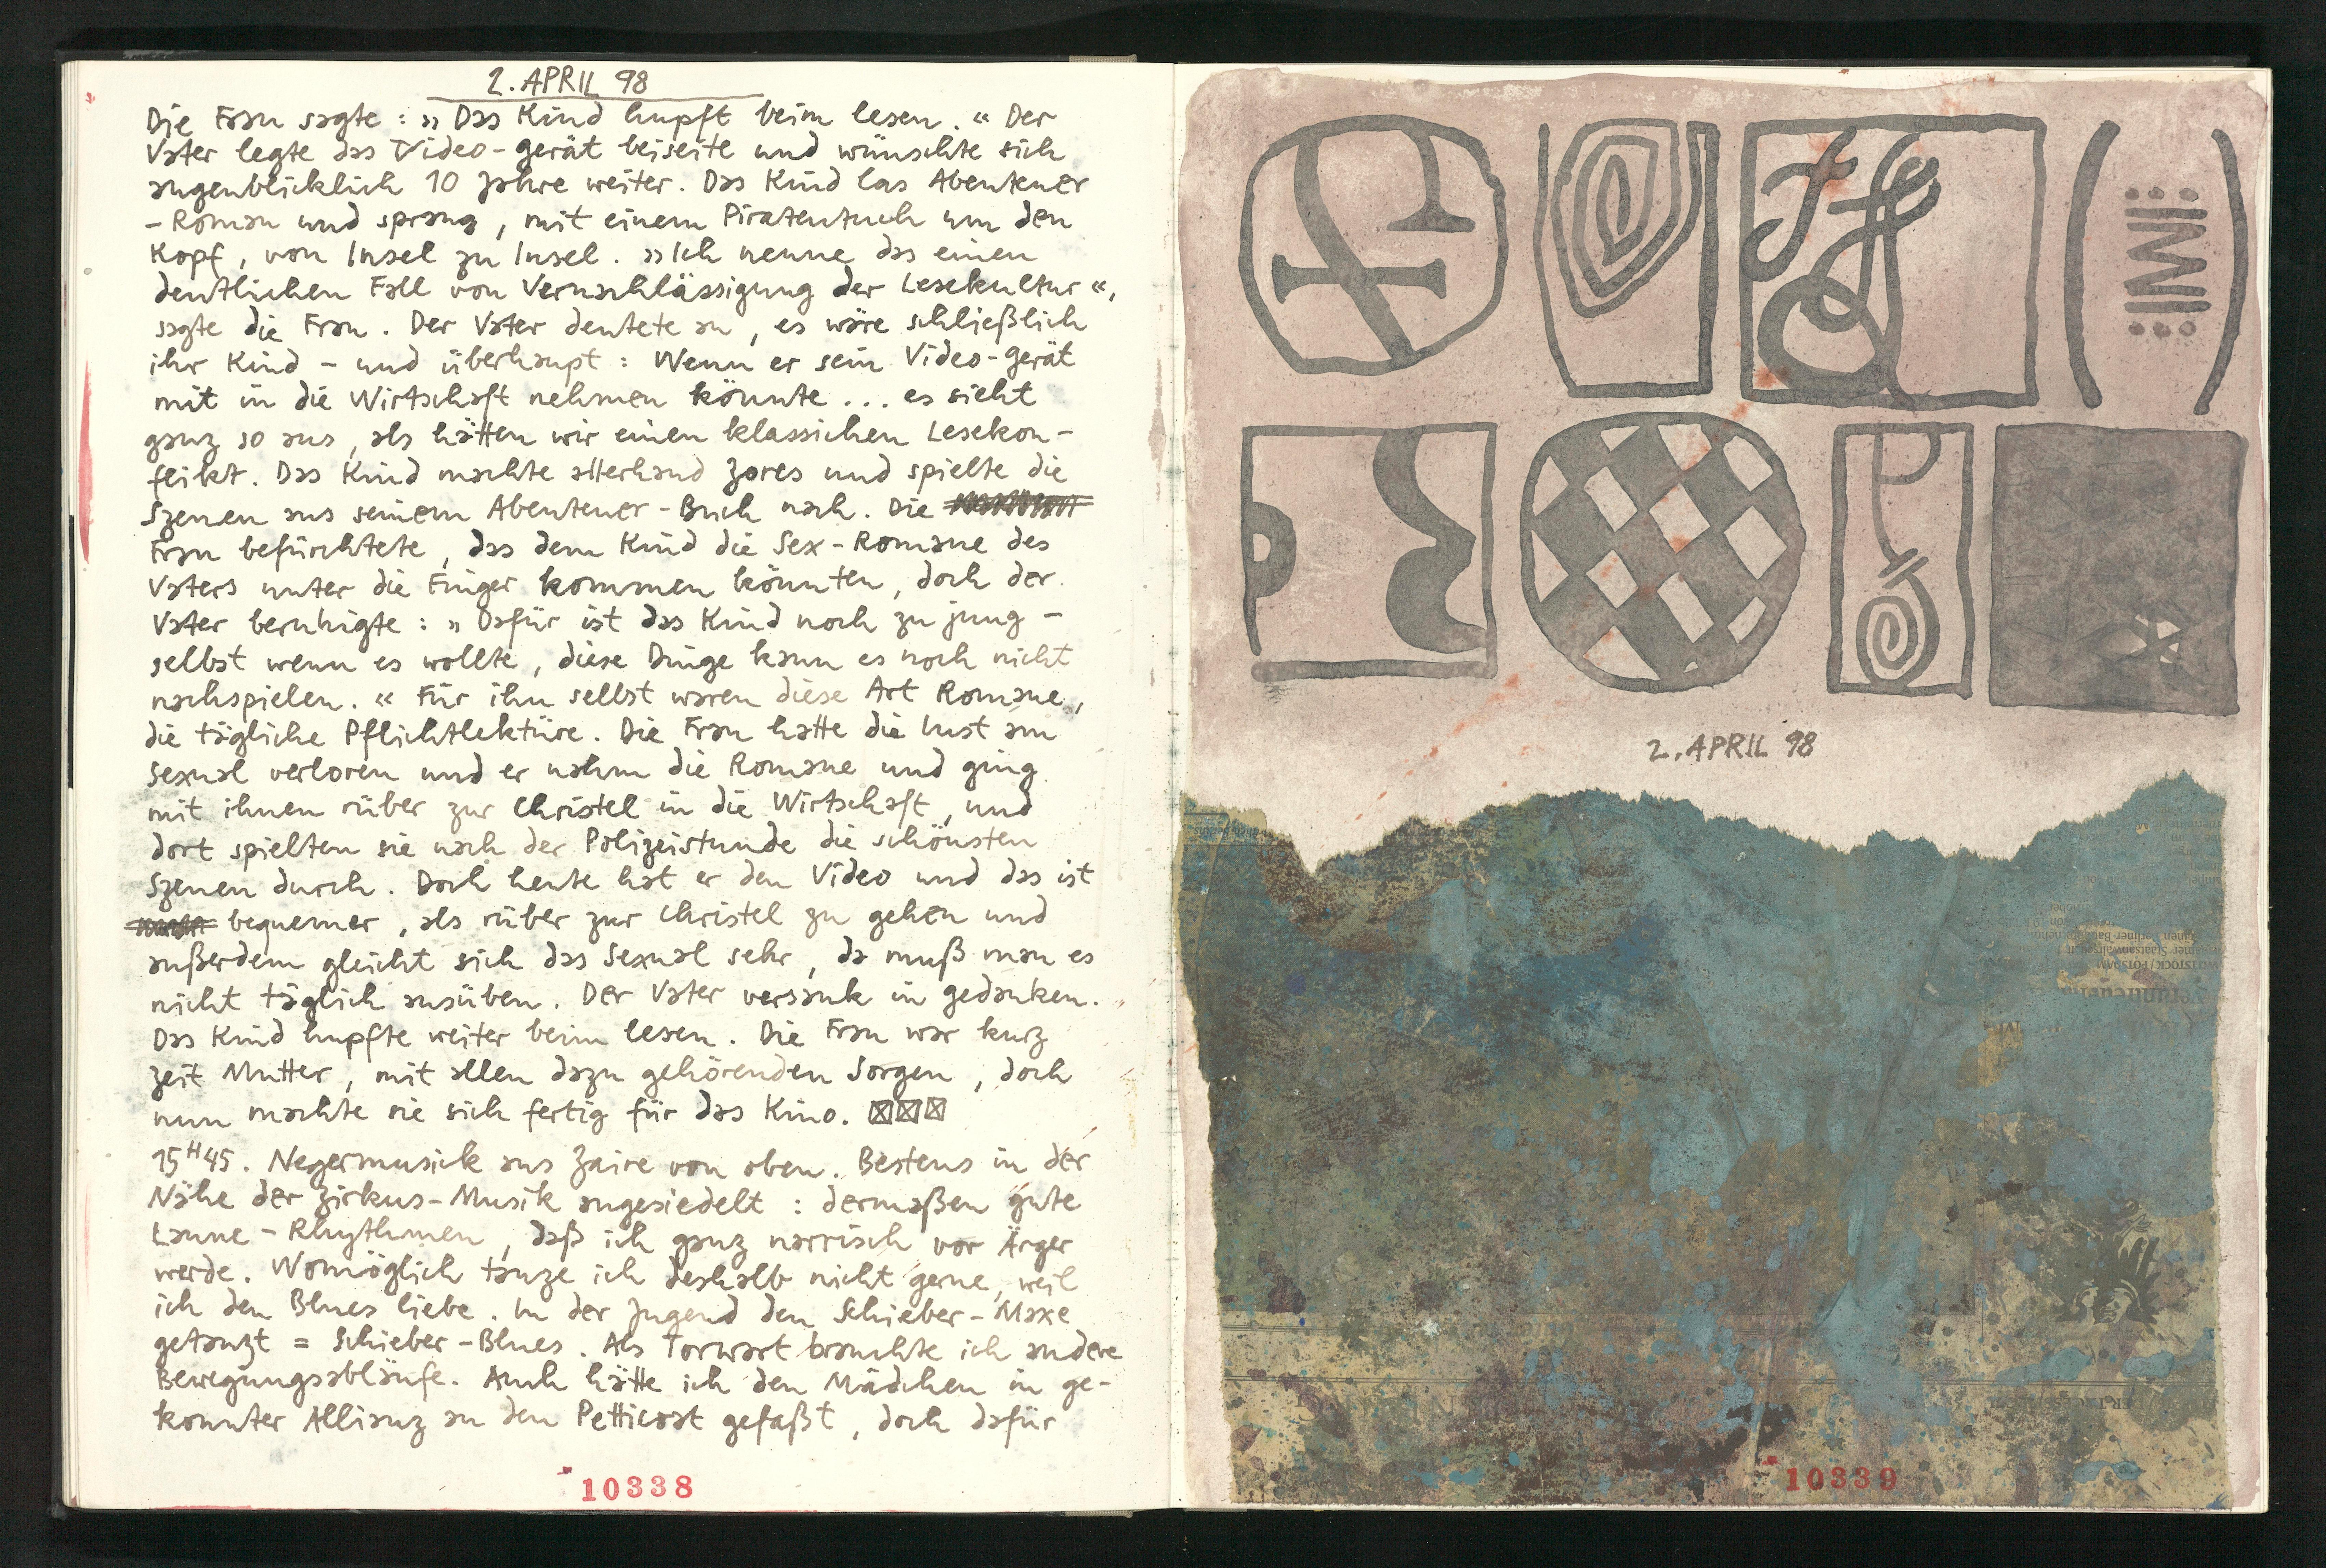 2. APRIL 98
Die Frau sagte : » Das Kind hupft beim lesen. « Der
Vater legte das Video-gerät beiseite und wünschte sich
augenblicklich 10 Jahre weiter. Das Kind las Abenteuer
-Roman und sprang, mit einem Piratentuch um den
Kopf, von Insel zu Insel. » Ich nenne das einen
deutlichen Fall von Vernachlässigung der Lesekultur «,
sagte die Frau. Der Vater deutete an, es wäre schließlich
ihr Kind - und überhaupt : Wenn er sein Video-gerät
mit in die Wirtschaft nehmen könnte ... es sieht
ganz so aus, als hätten wir einen klassichen Lesekon-
flikt. Das Kind machte allerhand Zores und spielte die
Szenen aus seinem Abenteuer-Buch nach. Die
Frau befürchtete, das dem Kind die Sex-Romane des
Vaters unter die Finger kommen könnten, doch der
Vater beruhigte : » Dafür ist das Kind noch zu jung -
selbst wenn es wollte, diese Dinge kann es noch nicht
nachspielen. « Für ihn selbst waren diese Art Romane,
die tägliche Pflichtlektüre. Die Frau hatte die Lust am
Sexual verloren und er nahm die Romane und ging
mit ihnen rüber zur Christel in die Wirtschaft, und
dort spielten sie nach der Polizeistunde die schönsten
Szenen durch. Doch heute hat er den Video und das ist
bequemer, als rüber zur Christel zu gehen und
außerdem gleicht sich das Sexual sehr, da muß man es
nicht täglich ausüben. Der Vater versank in gedanken.
Das Kind hupfte weiter beim lesen. Die Frau war kurz
zeit Mutter, mit allen dazu gehörenden Sorgen, doch
nun machte sie sich fertig für das Kino. ☒☒☒
15H45. Negermusick aus Zaire von oben. Bestens in der
Nähe der Zirkus-Musik angesiedelt : dermaßen gute
Laune-Rhythmen, daß ich ganz narrisch vor Ärger
werde. Womöglich tanze ich deshalb nicht gerne, weil
ich den Blues liebe. In der Jugend den Schieber-Maxe
getanzt = Schieber-Blues. Als Torwart brauchte ich andere
Bewegungsabläufe. Auch hätte ich den Mädchen in ge-
konnter Allianz an den Petticoat gefaßt, doch dafür
10338
2. APRIL 98
10339